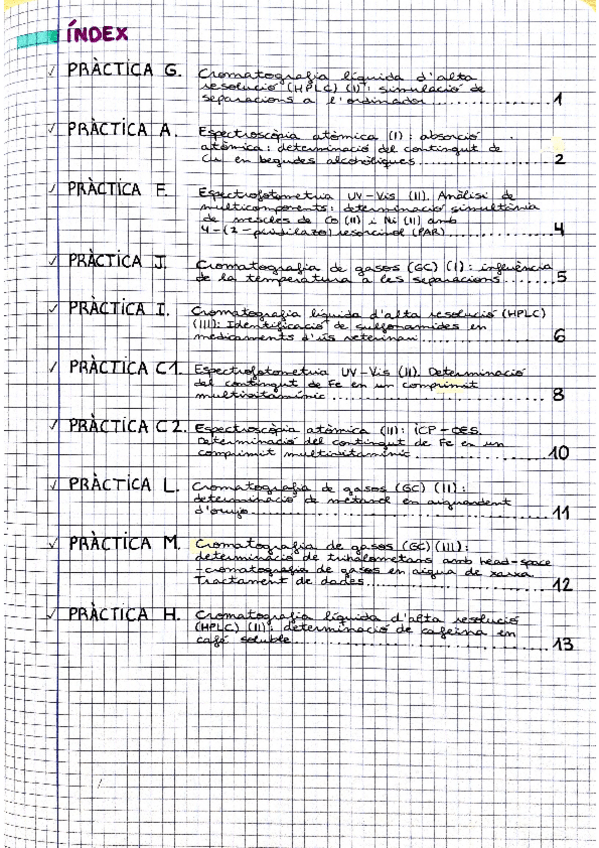 ÍNDEX
✓ PRÀCTICA G. Cromatografia líquida d'alta
resolució (HPLC) (I): simulació de
separacions a l'ordinador..............1
✓ PRÀCTICA A. Espectroscòpia atòmica (I): absorció
atòmica: determinació del contingut de
Cu en begudes alcohòliques..............2
✓ PRÀCTICA F. Espectrofotometria UV-Vis (II). Anàlisi de
multicomponents: determinació simultània
de mescles de Co (II) i Ni (II) amb
4-(2-piridilazo) resorcinol (PAR)..............4
✓ PRÀCTICA J. Cromatografia de gasos (GC) (I): influència
de la temperatura a les separacions........5
✓ PRÀCTICA I. Cromatografia líquida d'alta resolució (HPLC)
(III): Identificació de sulfonamides en
medicaments d'ús veterinari..............6
✓ PRÀCTICA C1. Espectrofotometria UV-Vis (II). Determinació
del contingut de Fe en un comprimit
multivitamínic..............8
✓ PRÀCTICA C2. Espectroscòpia atòmica (II): ICP-OES.
Determinació del contingut de Fe en un
comprimit multivitamínic..............10
✓ PRÀCTICA L. Cromatografia de gasos (GC) (II):
determinació de metanol en aiguardent
d'orujo..............11
✓ PRÀCTICA M. Cromatografia de gasos (GC) (III):
determinació de trihalometans amb head-space
-cromatografia de gasos en aigua de xarxa.
Tractament de dades..............12
✓ PRÀCTICA H. Cromatografia líquida d'alta resolució
(HPLC) (II): determinació de cafeïna en
cafè soluble..............13